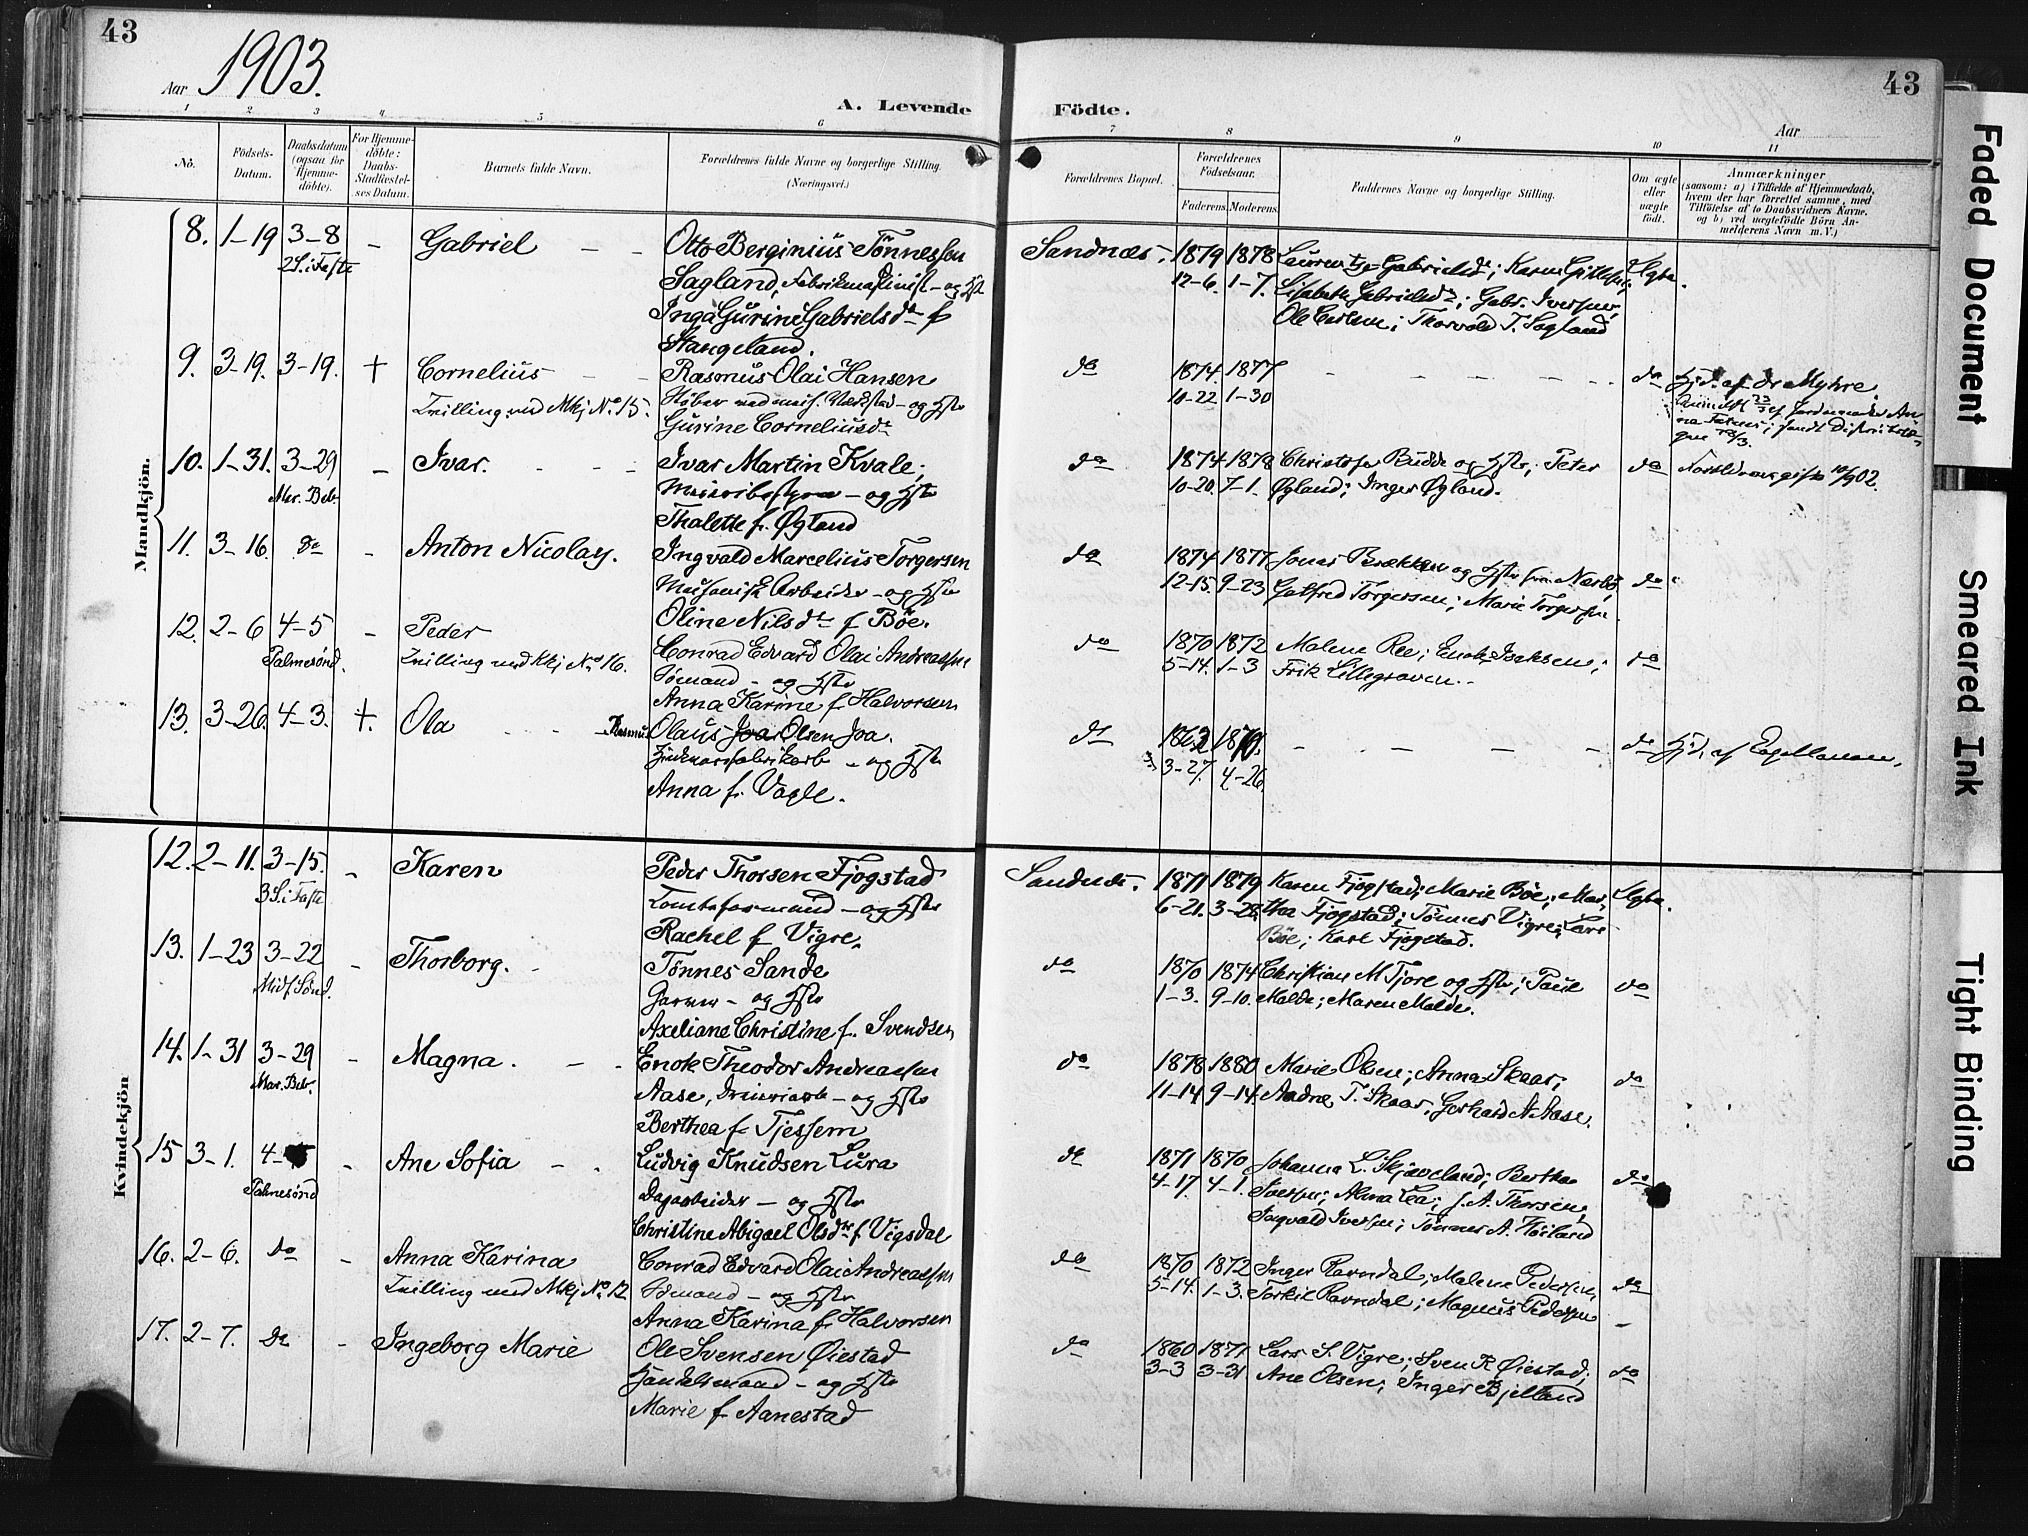 43
Aar 1903.
A. Levende
Födte.
Aar
43
1 2 3 4 5 6 7 8 9 10 11
No.
Födsels-Datum.
Daabsdatum (ogsaa for Hjemme-döbte).
For Hjemme-döbte: Daabs-Stadfæstel-ses Datum.
Barnets fulde Navn.
Forældrenes fulde Navne og borgerlige Stilling.
(Næringsvei.)
Forældrenes Bopæl.
Forældrenes Födselsaar.
Faderens. Moderens.
Faddernes Navne og borgerlige Stilling.
Om ægte eller uægte födt.
Anmærkninger
(saasom: a) i Tilfælde af Hjemmedaab, hvem der har forrettet samme, med Tilföielse af to Daabsvidners Navne, og b) ved uægtefödte Börn An-melderens Navn m. V.)
Mandkjön.
8. 1-19 3-8 - Gabriel - - Otto Berginius Tönnessen Sandnæs. 1879 1878
2 S. i Faste Sagland, Fabrikmaskinist - og Hst 12-6. 1-7.
Inga Gurine Gabrielsdr f
Ole Carlsen; Thorvald T. Sagland
Stangeland.
9. 3-19. 3-19. + Cornelius - - Rasmus Olai Hansen do 1874. 1877 - - - - do Hjd. af dr Myhre.
Tvilling med Mkj No 15. 10-22 1-30
Gurine Corneliusdr
10. 1-31. 3-29 - Ivar. - - Ivar Martin Kvale; do 1874 1878 Christofer Budde og Hstr; Peter do
Mar. Beb. Meieribestyrer - og Hstr 10-20. 7-1. Øgland; Inger Øgland.
Thalette f. Øgland
11. 3-16. do - Anton Nicolay. Ingvald Marcelius Torgersen do 1874 1877 Jonas Brekken og Hstr fra Nærbö do
Arbeider - og Hstr 12-15. 9-23 Gotfred Torgersen; Marie Torgersen.
Oline Nilsdr f Böe.
12. 2-6 4-5 - Peder Conrad Edvard Olai Andreassen do 1870 1872 Malene Ree; Enok Iseksen; do
Palmesönd. Tvilling med Kkj No 16. Sömand - og Hstr 5-14. 1-3
Anna Karine f Halvorsen
13. 3-26. 4-3. +. Ola - - Rasmus Olaus Joa Olsen Joa. do - - - - do Hjd. af
- og Hstr 3-27. 4-26.
Anna f. Vagle.
Kvindekjön
12. 2-11. 3-15. - Karen Peder Thorsen Fjogstad Sandnæs. 1871 1879 Karen Fjogstad; Marie Böe; Mar-
3 S. i Faste Tomteformand - og Hstr 6-21. 3-28. tha Fjogstad; Tönnes Vigre; Lars
Rachel f Vigre. Böe; Karl Fjogstad.
13. 1-23 3-22 - Thorborg. - Tönnes Sande do 1870 1874 Christian M Tjore og Hstr; Paul do
Midf. Sönd. Garver - og Hstr 1-3. 9-10. Malde; Maren Malde.
Axeliane Christine f. Svendsen
14. 1-31 3-29 - Magna. - - Enok Theodor Andreassen do 1878 1880 Marie Olsen; Anna Skaar; do
Mar. Beb. Aase, - og Hstr 11-14 9-14. Aadne T. Skaar; Gerhard A. Aase.
Berthea f Tjessem
15 3-1. - Ane Sofia - - Ludvig Knudsen Lura do 1871 1870 Johanna L. Skjæveland; Bertha do
Palmesönd Dagarbeider - og Hstr 4-17. 4-1. Iversen; Alma Lea; J. A. Thorsen;
Christine Abigael Olsdtr f Vigsdal Ingvald Iversen; Tönnes A. Höiland
16. 2-6. do - Anna Karina Conrad Edvard Olai Andreassen do 1870 1872 Inger Ravndal; Malene Pedersen; do
Tvilling med Mkj No 12 Sömand - og Hstr 5-14. 1-3. Torkil Ravndal; Magnus Pedersen
Anna Karina f Halvorsen
17. 2-7. do - Ingeborg Marie Ole Svensen Øiestad do 1860 1871 Lars S. Vigre; Sven K Øiestad; do
Handelsmand - og Hstr 3-3 3-31. Ane Olsen; Inger Bjelland
Marie f Aanestad
Faded Document
Smeared Ink
Tight Binding